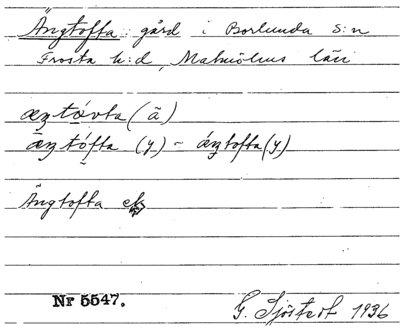 Ängtofta gård i Borlunda s:n
Frosta h:d, Malmöhus län
æŋtóvta (ä)
æŋtófta (y) - ǽŋtofta (y)
Ängtofta ek
Nr 5547.
G. Sjöstedt 1936